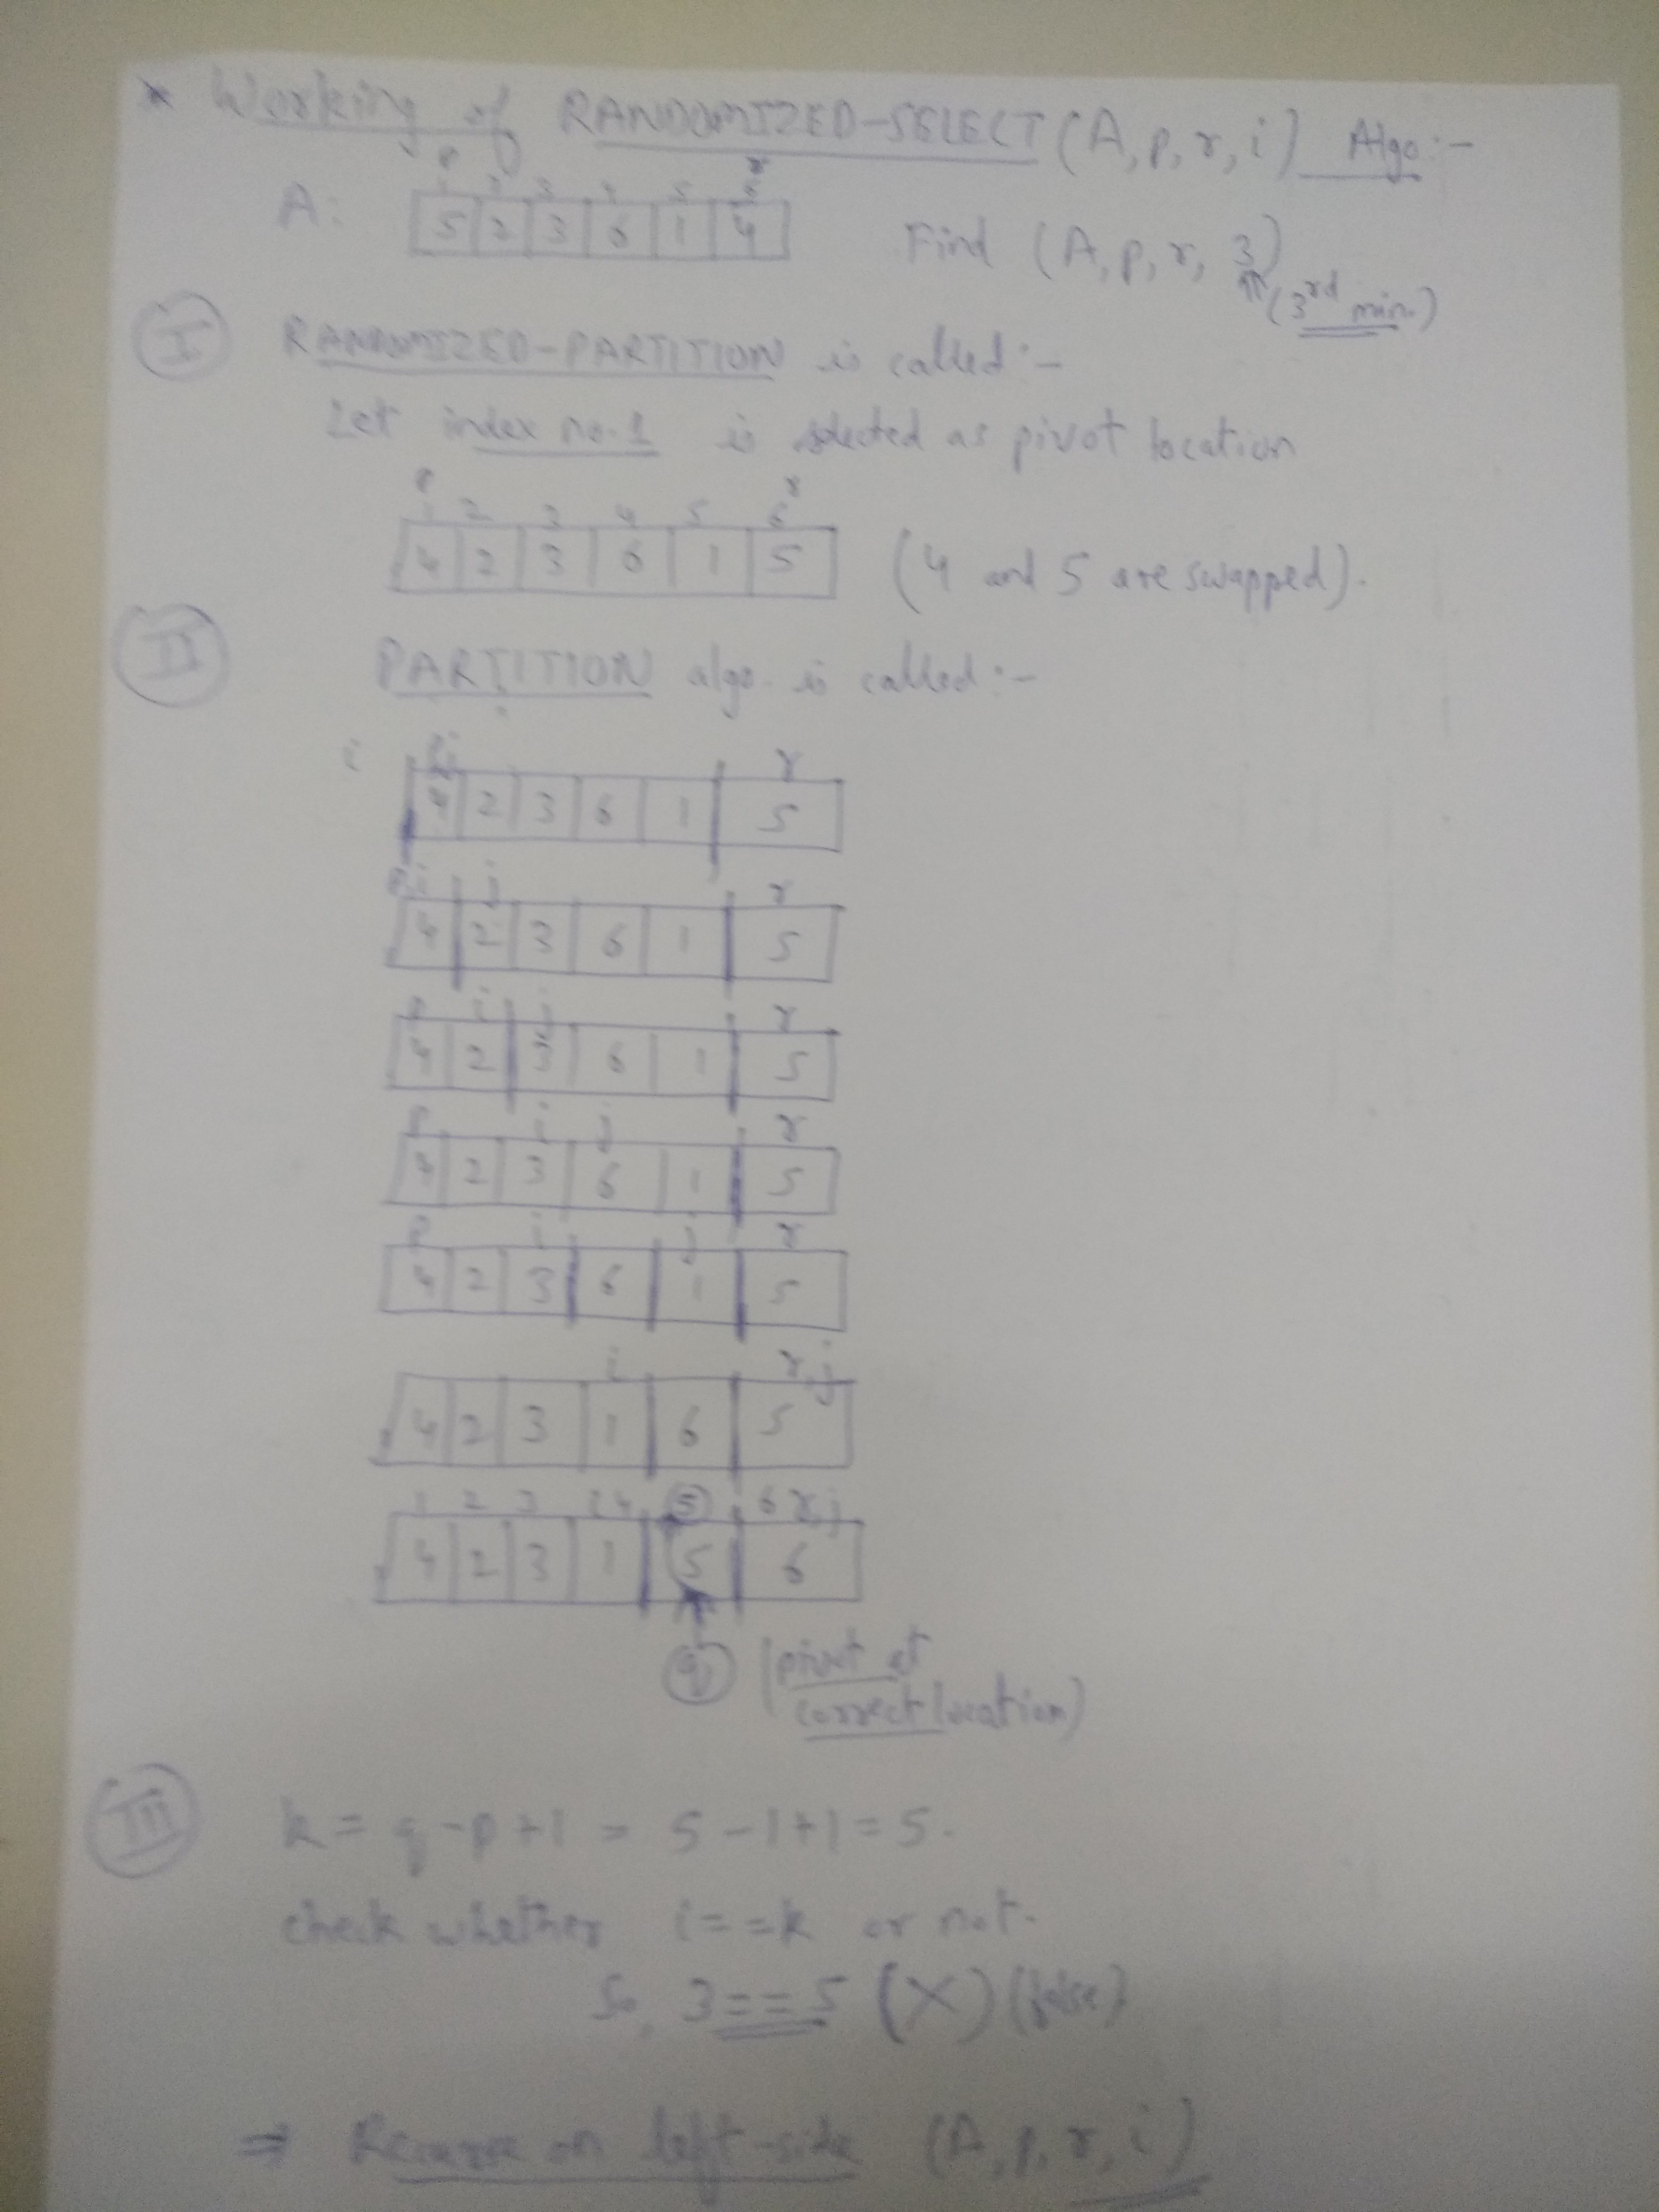 * Working of RANDOMIZED-SELECT (A, p, r, i) Algo :-
p r
1 2 3 4 5 6
A: 5 2 3 6 1 4 Find (A, p, r, 3)
(3rd min.)
I RANDOMIZED-PARTITION is called :-
Let index no. 1 is selected as pivot location
p r
1 2 3 4 5 6
4 2 3 6 1 5 (4 and 5 are swapped).
II PARTITION algo. is called :-
i p,j r
4 2 3 6 1 5
p,i j r
4 2 3 6 1 5
p i j r
4 2 3 6 1 5
p i j r
4 2 3 6 1 5
p i j r
4 2 3 6 1 5
i r,j
4 2 3 1 6 5
1 2 3 i 4 5 6 r,j
4 2 3 1 5 6
q (pivot at
correct location)
III k = q-p+1 = 5-1+1 = 5.
check whether i==k or not.
So, 3==5 (X) (false)
⇒ Recurse on left-side (A, p, r, i)